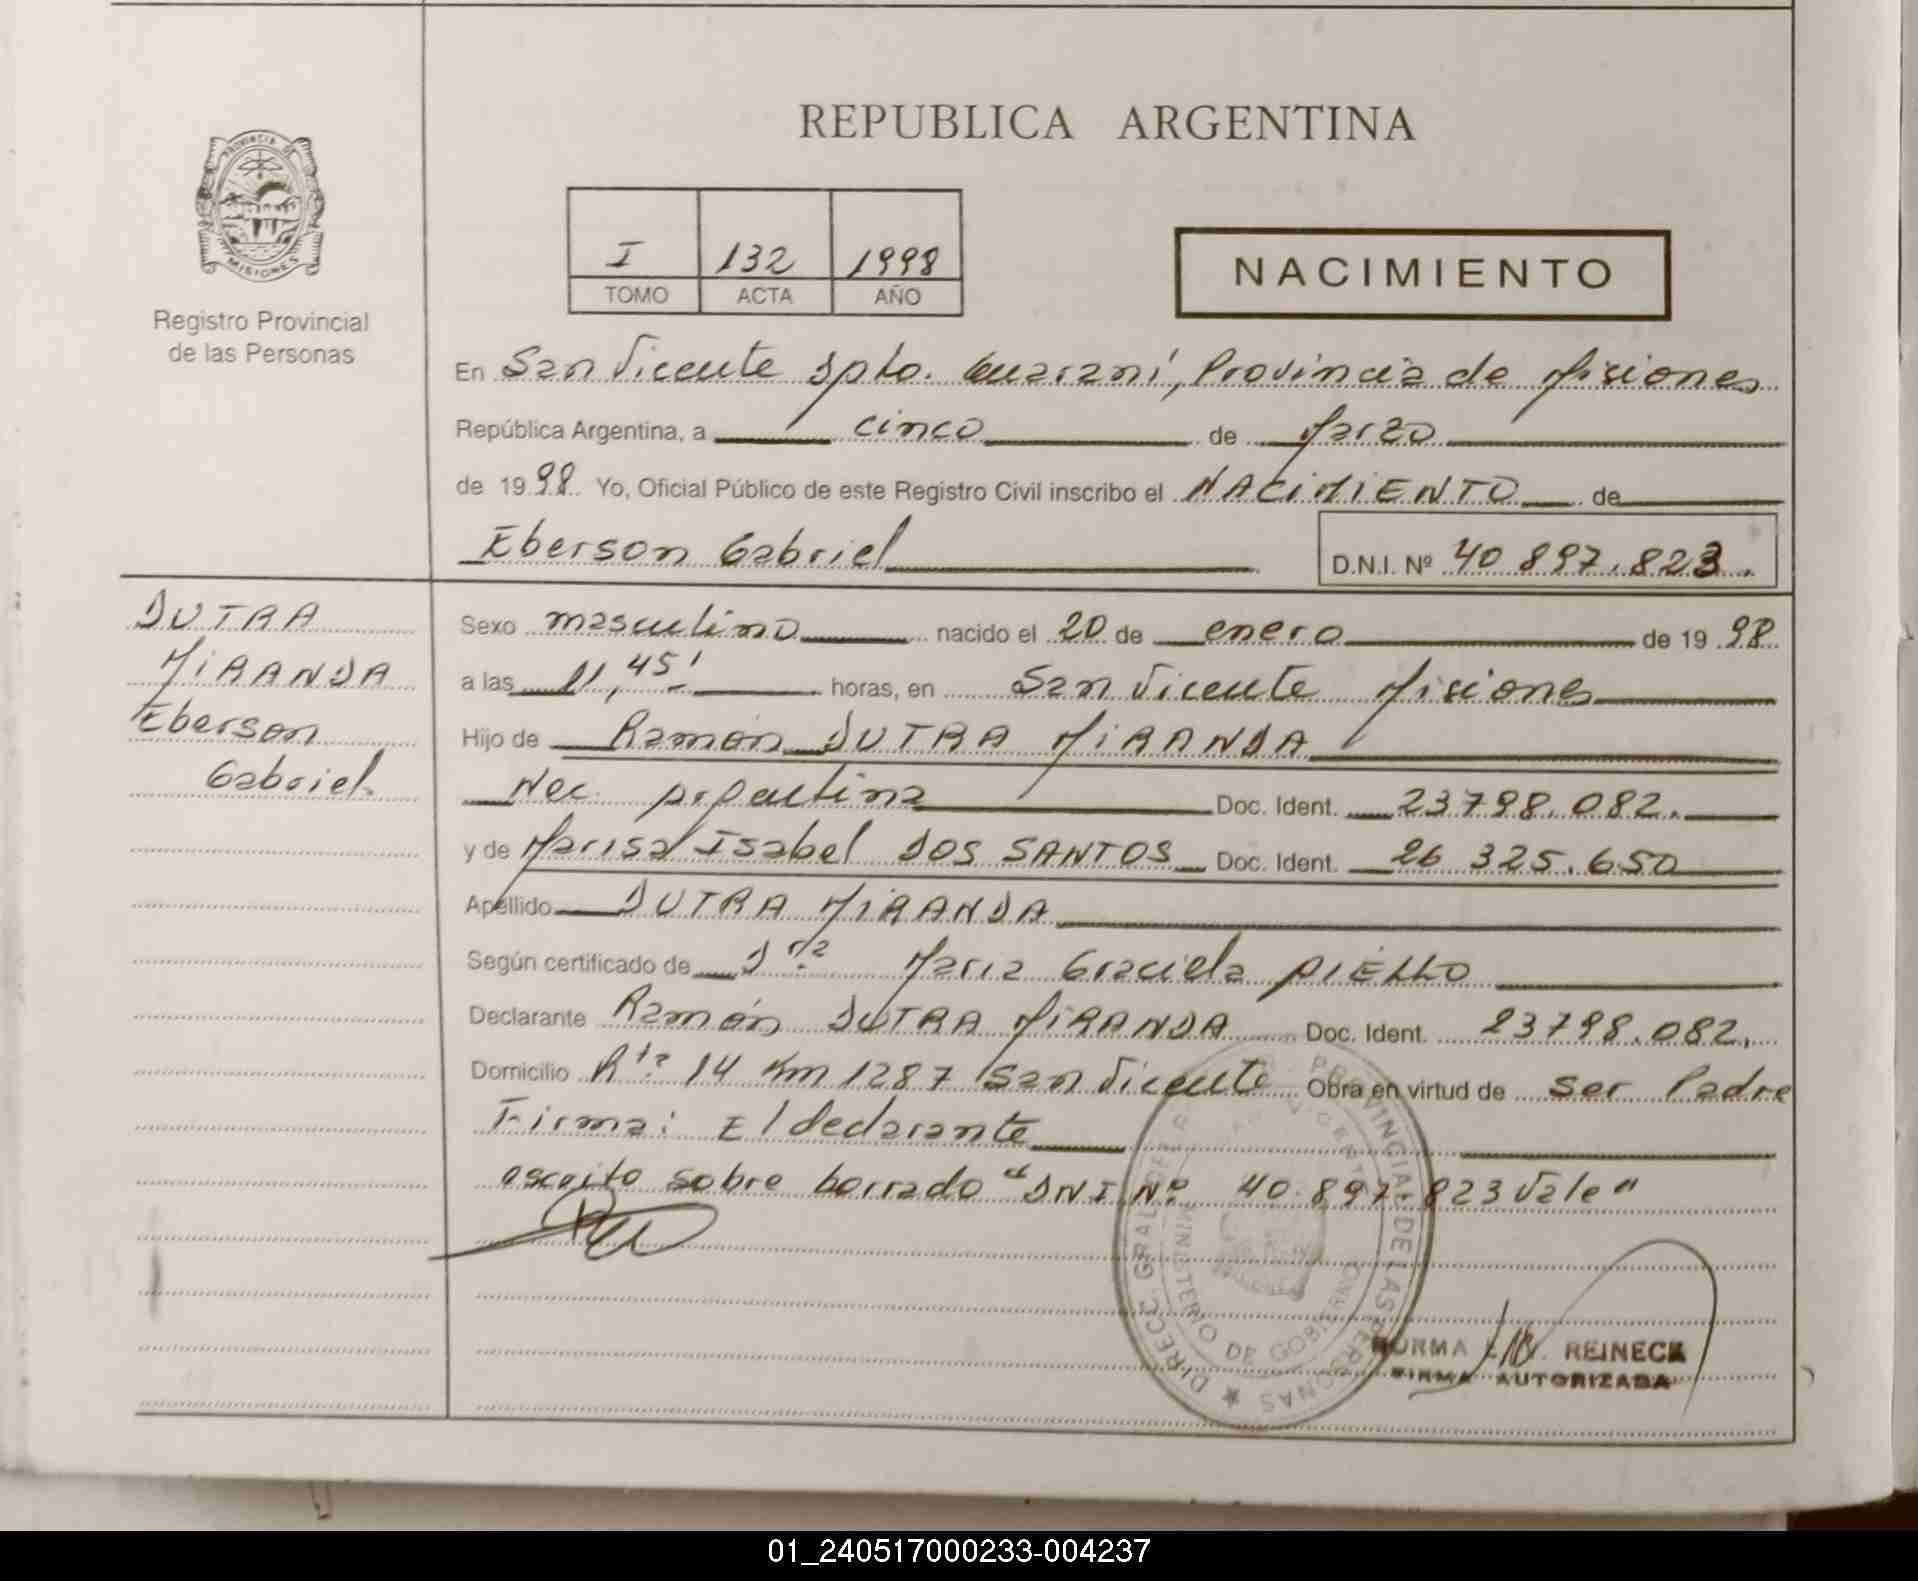 REPUBLICA ARGENTINA
PROVINCIA DE MISIONES
Registro Provincial
de las Personas
I 132 1998
TOMO ACTA AÑO
NACIMIENTO
En San Vicente Dpto. Guaraní, Provincia de Misiones
República Argentina, a cinco de Marzo
de 1998 Yo, Oficial Público de este Registro Civil inscribo el NACIMIENTO de
Eberson Gabriel D.N.I. Nº 40 897.823.
DUTRA
MIRANDA
Eberson
Gabriel.
Sexo masculino nacido el 20 de enero de 1998
a las 11,45' horas, en San Vicente Misiones
Hijo de Ramón DUTRA MIRANDA
Nac. Argentina Doc. Ident. 23798.082.
y de Marisa Isabel DOS SANTOS Doc. Ident. 26 325.650
Apellido DUTRA MIRANDA
Según certificado de Dra Maria Graciela
Declarante Ramón DUTRA MIRANDA Doc. Ident. 23798.082.
Domicilio Rta 14 Km 1287 San Vicente Obra en virtud de ser Padre
Firma: El declarante
escrito sobre borrado "DNI Nº 40.897.823 Vale"
DIRECC. GRAL. DE PROVINCIAL DE LAS PERSONAS
MINISTERIO DE GOBIERNO
NORMA REINECK
FIRMA AUTORIZADA
01_240517000233-004237